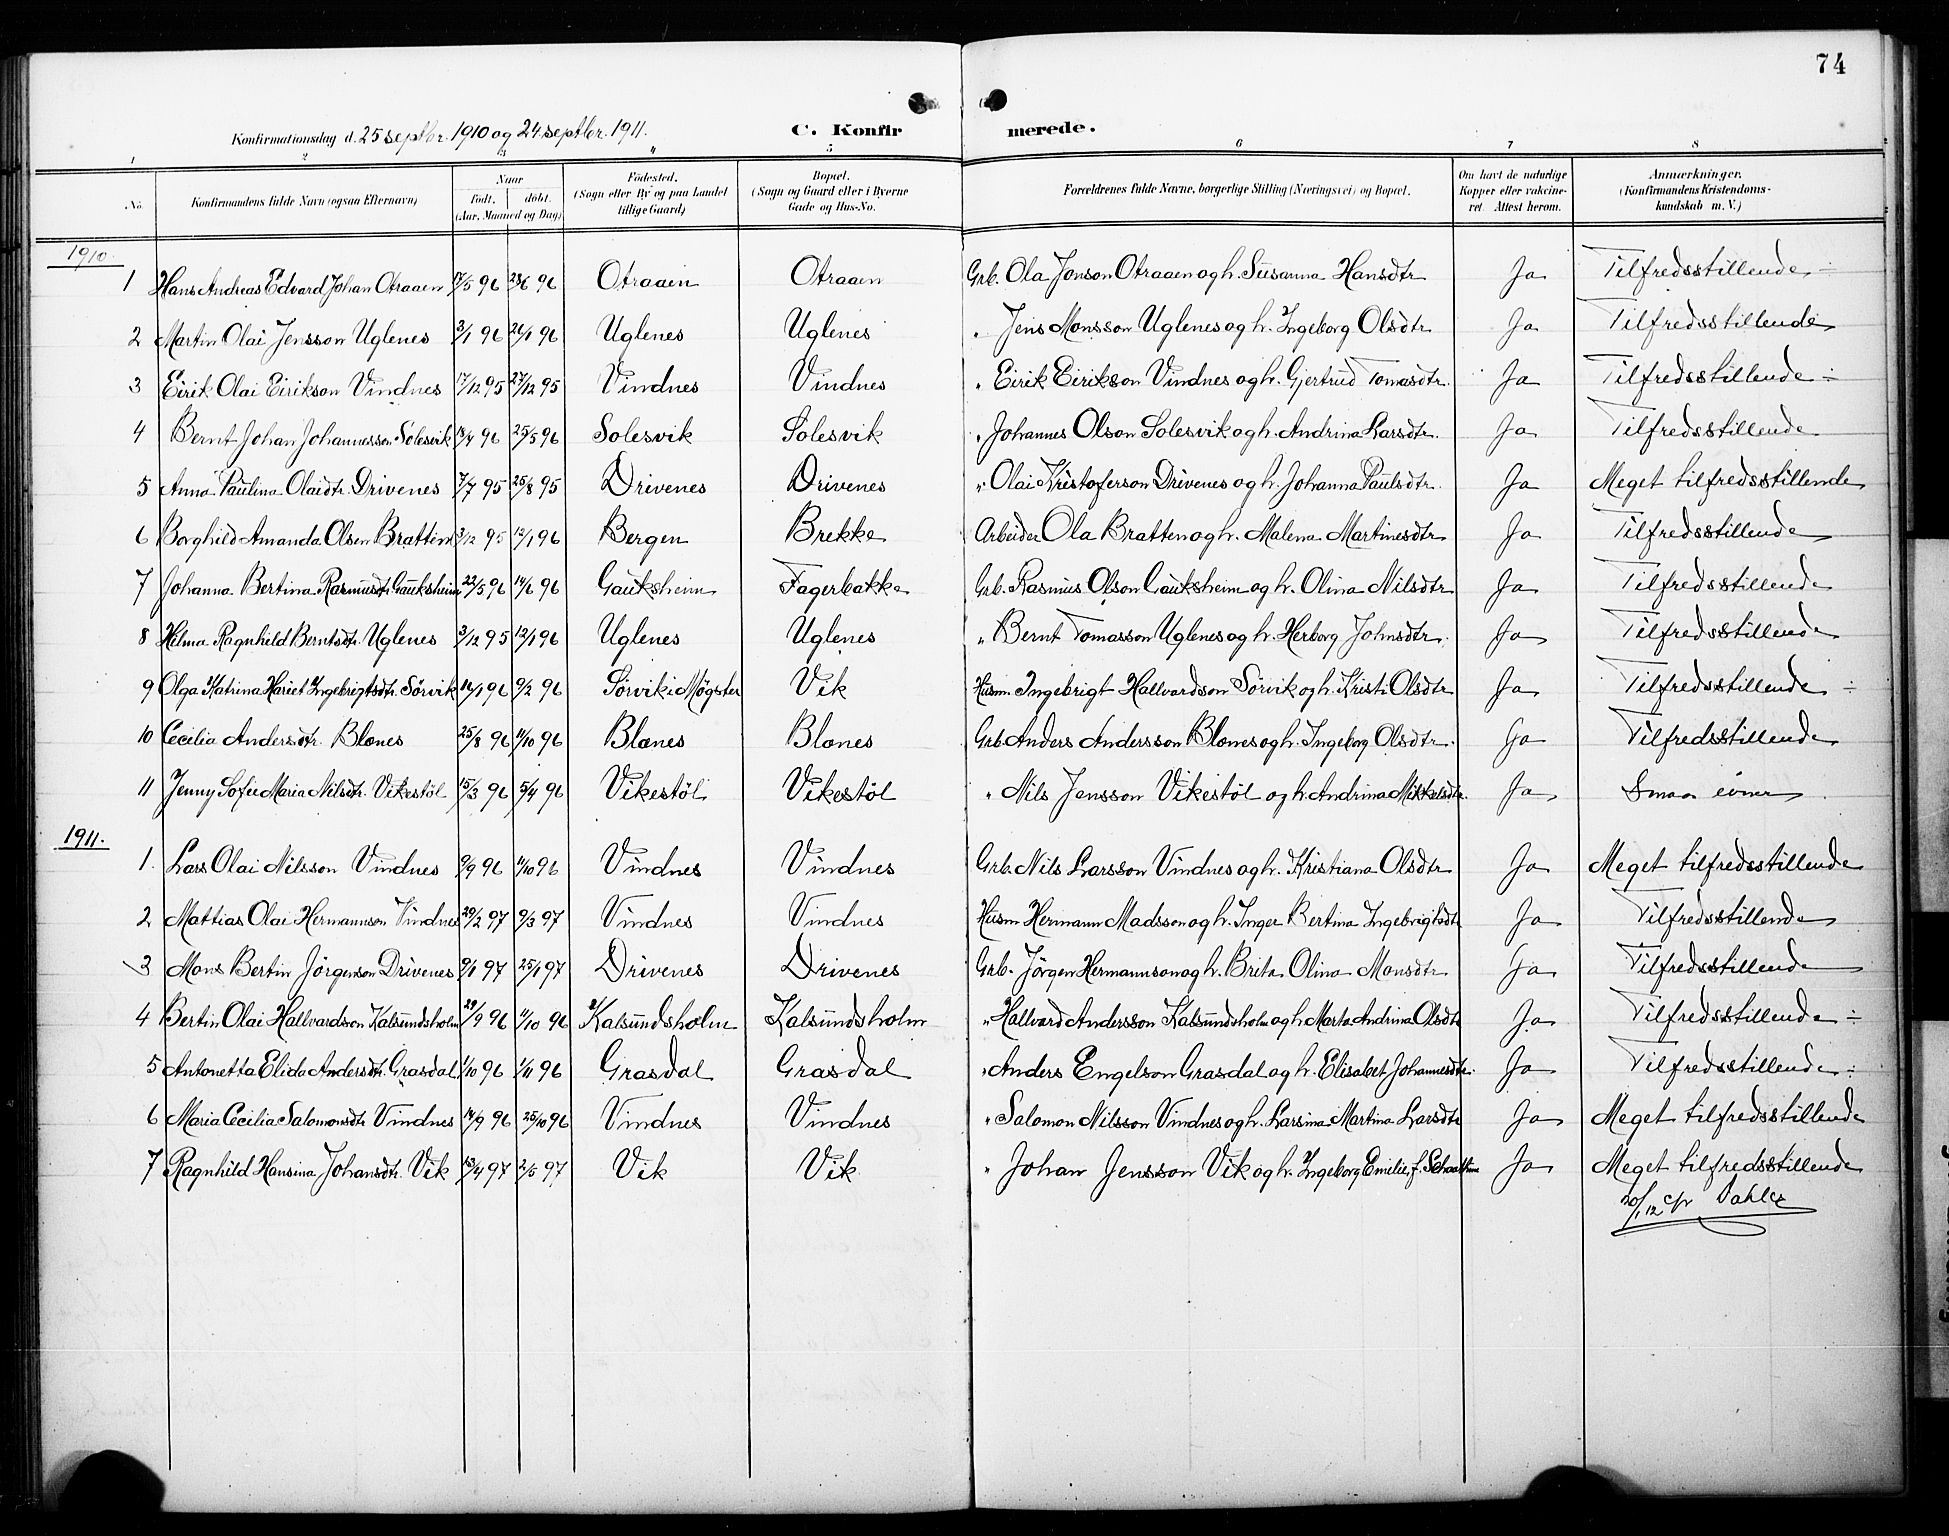 74
Konfirmationsdag d. 25 septbr. 1910 og 24 septbr. 1911. C. Konfirmerede.
1 2 3 4 5 6 7 8
No. Konfirmandens fulde Navn (ogsaa Efternavn) Naar født, døbt. (Aar, Maaned og Dag) Fødested. (Sogn eller By og paa Landet tillige Gaard) Bopæl. (Sogn og Gaard eller i Byerne Gade og Hus-No. Forældrenes fulde Navne, borgerlige Stilling (Næringsvei) og Bopæl. Om havt de naturlige Kopper eller vakcineret Attest herom. Anmærkninger. (Konfirmandens Kristendomskundskab m. V.)
1910.
1 Hans Andreas Edvard Johan Otraaen 17/5 96 23/6 96 Otraaen Otraaen Grb. Ola Jonson Otraaen og h. Susanna Hansdtr Ja Tilfredsstillende ÷
2 Martin Olai Jensson Uglenes 3/1 96 26/1 96 Uglenes Uglenes " Jens Monsson Uglenes og h. Ingeborg Olsdtr Ja Tilfredsstillende
3 Eirik Olai Eirikson Vindnes 17/12 95 27/12 95 Vindnes Vindnes " Eirik Eirikson Vindnes og h. Gjertrud Tomasdtr. Ja Tilfredsstillende ÷
4 Bernt Johan Johannesson Solesvik 18/4 96 25/5 96 Solesvik Solesvik " Johannes Olson Solesvik og h. Andrina Larsdtr. Ja Tilfredsstillende
5 Anna Paulina Olaidtr. Drivenes 7/7 95 25/8 95 Drivenes Drivenes " Olai Kristoferson Drivenes og h. Johanna Paulsdtr. Ja Meget tilfredsstillende
6 Borghild Amanda Olsen Bratten 3/12 95 12/1 96 Bergen Brekke Arbeider Ola Bratten og h. Malena Martinesdtr Ja Tilfredsstillende
7 Johanna Bertina Rasmusdtr. Gauksheim 22/5 96 14/6 96 Gauksheim Fagerbakke Grb. Rasmus Olson Gauksheim og h. Olina Nilsdtr Ja Tilfredsstillende
8 Helma Ragnhild Berntsdtr. Uglenes 3/12 95 12/1 96 Uglenes Uglenes " Bernt Tomasson Uglenes og h. Herborg Johnsdtr. Ja Tilfredsstillende
9 Olga Katrina Hariet Ingebrigtsdtr. Sörvik 14/1 96 9/2 96 Sörvik i Møgster Vik Husm. Ingebrigt Hallvardson Sörvik og h. Kristi Olsdtr Ja Tilfredsstillende ÷
10 Cecilia Andersdtr. Blænes 25/8 96 11/10 96 Blænes Blænes Grb. Anders Andersson Blænes og h. Ingeborg Olsdtr. Ja Tilfredsstillende
11 Jenny Sofie Maria Nilsdtr. Vikestöl 15/3 96 5/4 96 Vikestöl Vikestöl " Nils Jensson Vikestöl og h. Andrina Mikkelsdtr. Ja Smaa evner
1911.
1. Lars Olai Nilsson Vindnes 9/9 96 11/10 96 Vindnes Vindnes Grb. Nils Larsson Vindnes og h. Kristiana Olsdtr Ja Meget tilfredsstillende
2 Mattias Olai Hermannson Vindnes 20/2 97 9/3 97 Vindnes Vindnes Husm Hermann Madsson og h. Inger Bertina Ingebrigtsdtr Ja Tilfredsstillende
3 Mons Bertin Jörgenson Drivenes 9/1 97 25/1 97 Drivenes Drivenes Grb. Jörgen Hermannson og h. Brita Olina Monsdtr Ja Tilfredsstillende
4 Bertin Olai Hallvardson Kalsundsholm 20/9 96 11/10 96 Kalsundsholm Kalsundsholm " Hallvard Andersson Kalsundsholm og h. Marta Andrina Olsdtr Ja Tilfredsstillende ÷
5 Antonetta Elida Andersdtr. Grasdal 1/10 96 1/11 96 Grasdal Grasdal " Anders Engelson Grasdal og h. Elisabet Johannesdtr. Ja Tilfredsstillende ÷
6 Maria Cecilia Salomonsdtr Vindnes 14/9 96 25/10 96 Vindnes Vindnes " Salomon Nilsson Vindnes og h. Larsina Martina Larsdtr Ja Meget tilfredsstillende
7 Ragnhild Hansina Johansdtr. Vik 13/4 97 2/5 97 Vik Vik " Johan Jensson Vik og h. Ingeborg Emilie f. Ja Meget tilfredsstillende